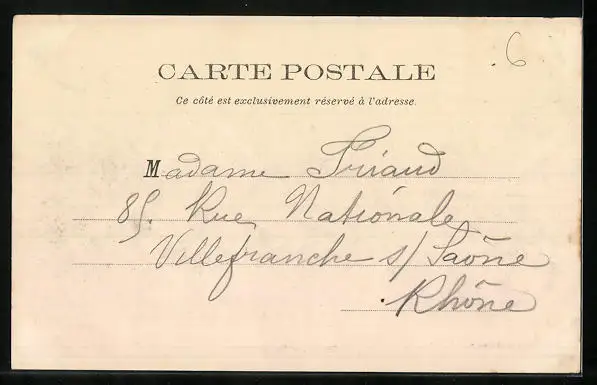 6
CARTE POSTALE
Ce côté est exclusivement réservé à l'adresse.
Madame
85. Rue Nationale
Villefranche s/ Saône
Rhône